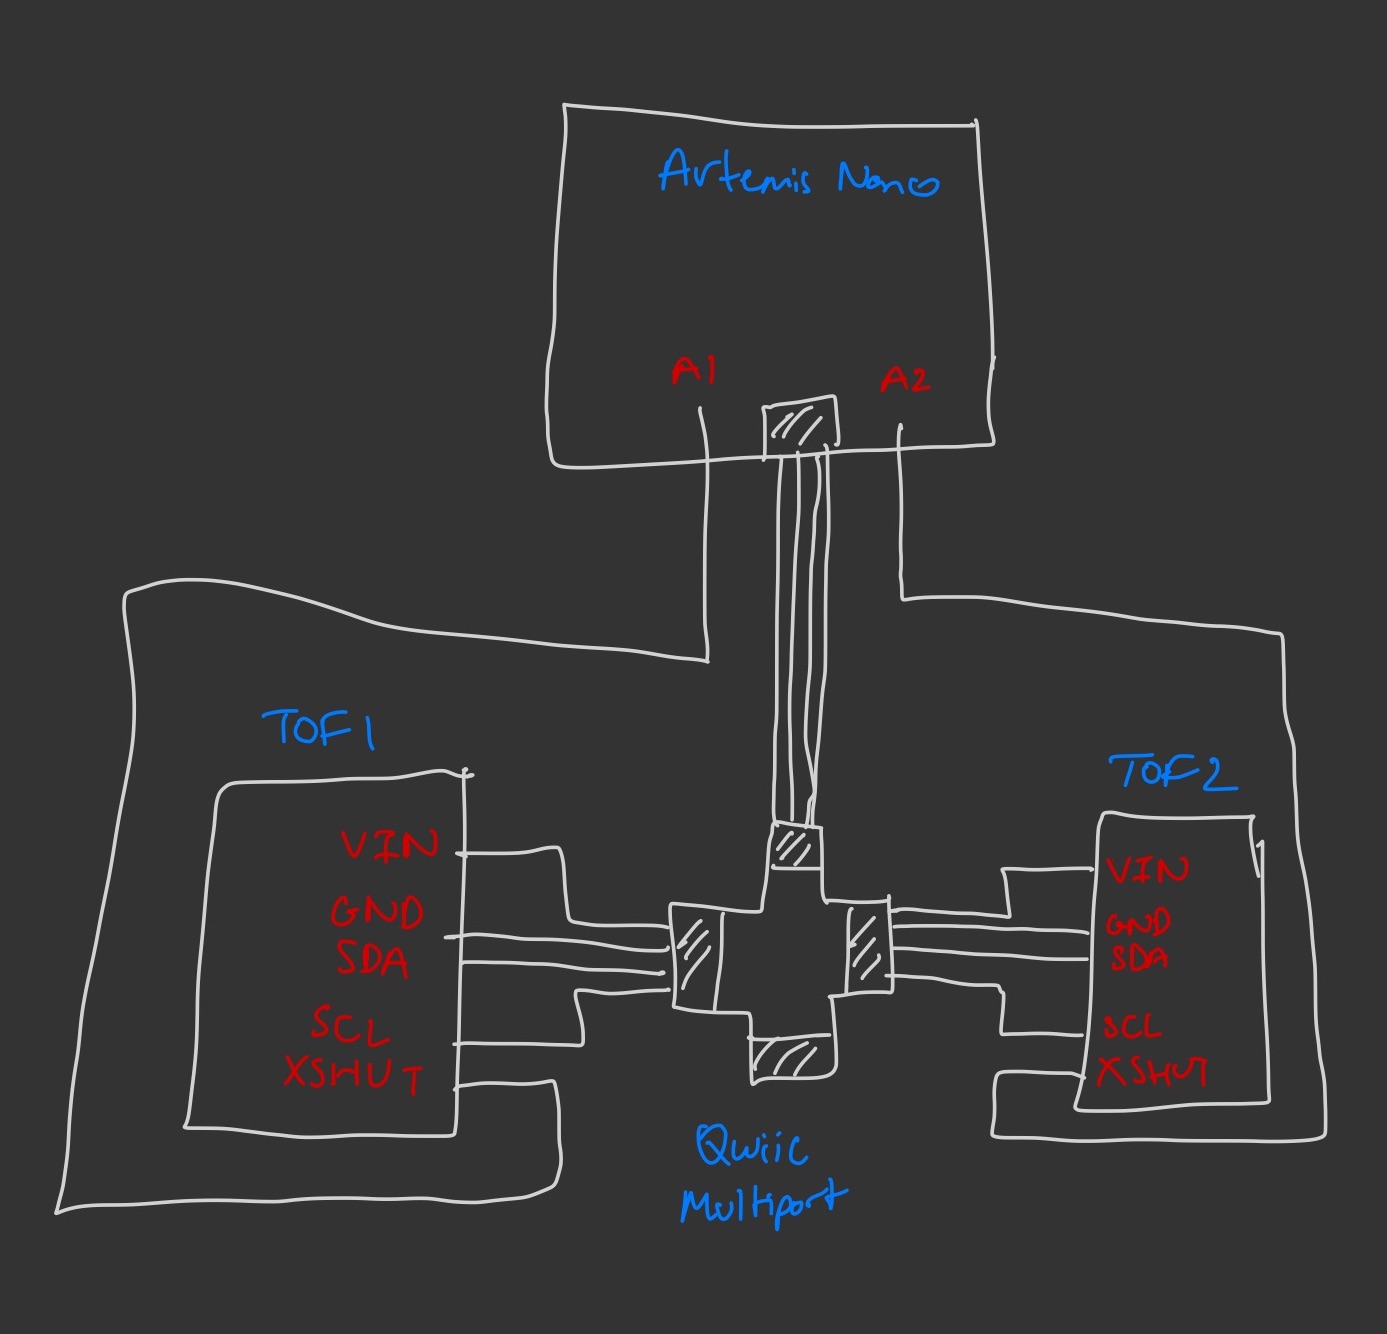 Artemis Nano
A1
A2
TOF1
VIN
GND
SDA
SCL
XSHUT
TOF2
VIN
GND
SDA
SCL
XSHUT
Qwiic
Multiport